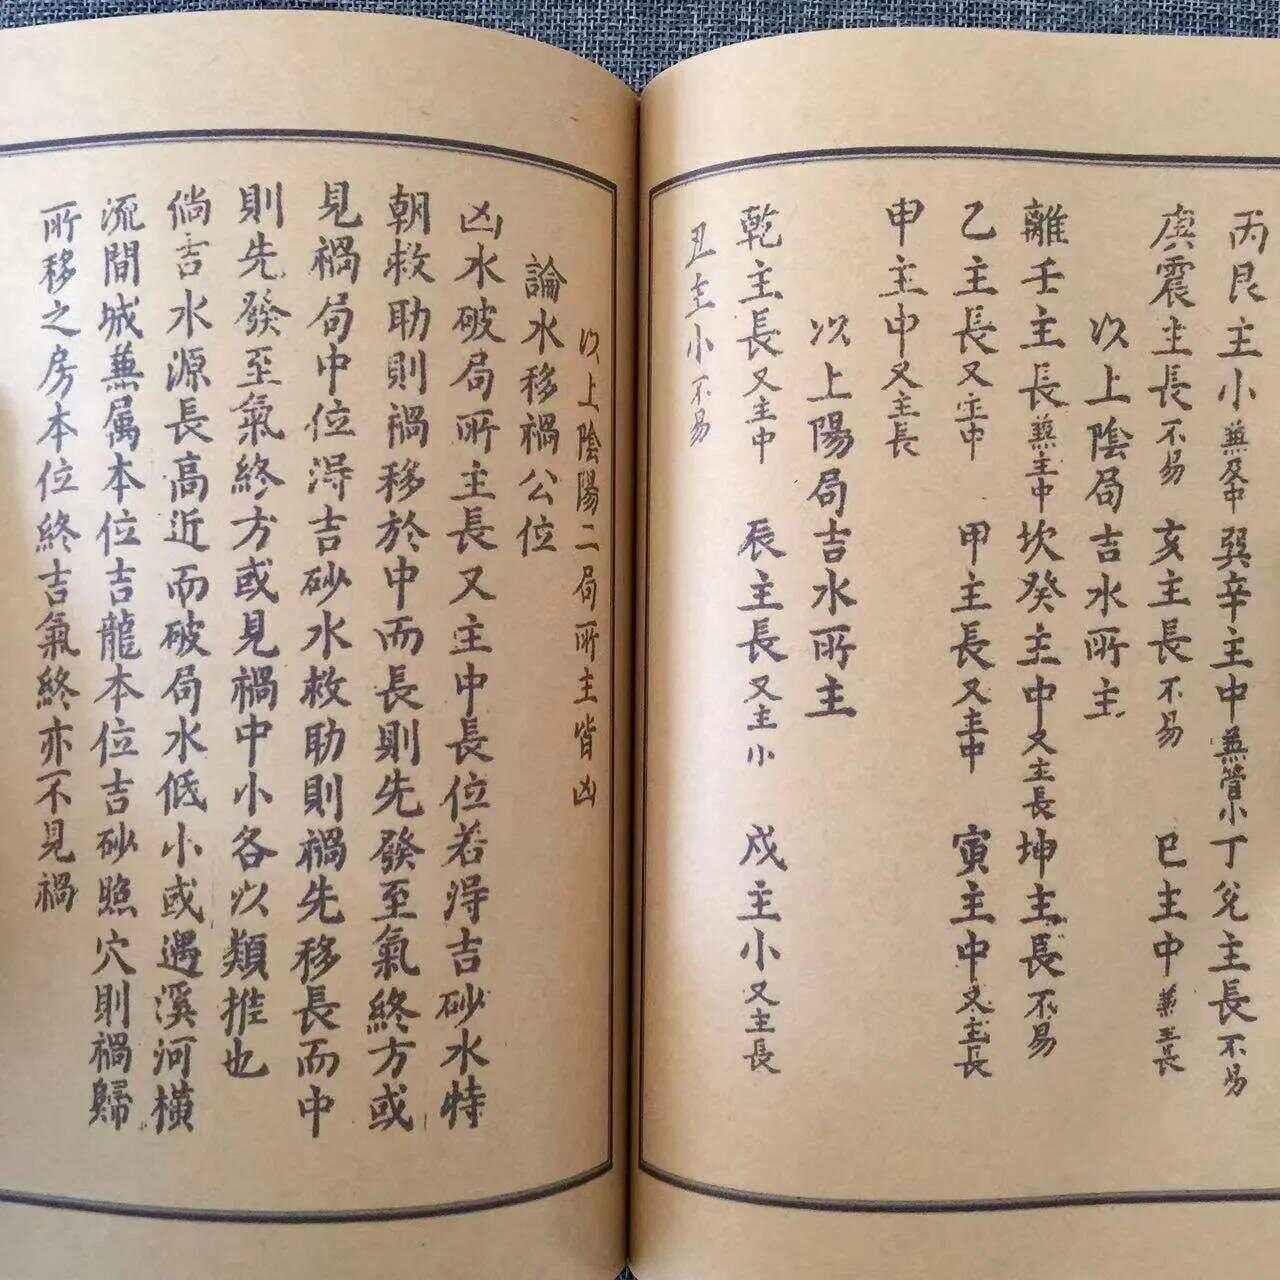 丙艮主小兼及中巽辛主中兼管小丁兌主長不易
庚震主長不易亥主長不易巳主中兼主長
以上陰局吉水所主
離壬主長兼主中坎癸主中又主長坤主長不易
乙主長又主中甲主長又主中寅主中又主長
申主中又主長
以上陽局吉水所主
乾主長又主中辰主長又主小戌主小又主長
丑主小不易
以上陰陽二局所主皆凶
論水移禍公位
凶水破局所主長又主中長位若得吉砂水特
朝救助則禍移於中而長則先發至氣終方或
見禍局中位得吉砂水救助則禍先移長而中
則先發至氣終方或見禍中小各以類推也
倘吉水源長高近而破局水低小或遇溪河橫
流間城兼属本位吉龍本位吉砂照穴則禍歸
所移之房本位終吉氣終亦不見禍